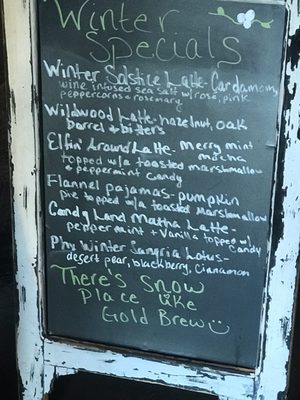 Winter
Specials
Winter Solstice Latte- Cardamom,
wine infused sea salt w/rose, pink
peppercorns & rosemary
Wildwood Latte- hazelnut, oak
barrel & bitters
Elfin' Around Latte- Merry mint
mocha
topped w/a toasted marshmallow
& peppermint candy
Flannel pajamas- pumpkin
pie topped w/a toasted Marshmallow
Candy Land Matcha Latte-
peppermint & Vanilla topped w/
Candy
Winter Sangria Lotus-
desert pear, blackberry, cinnamon
There's Snow
Place like
Gold Brew